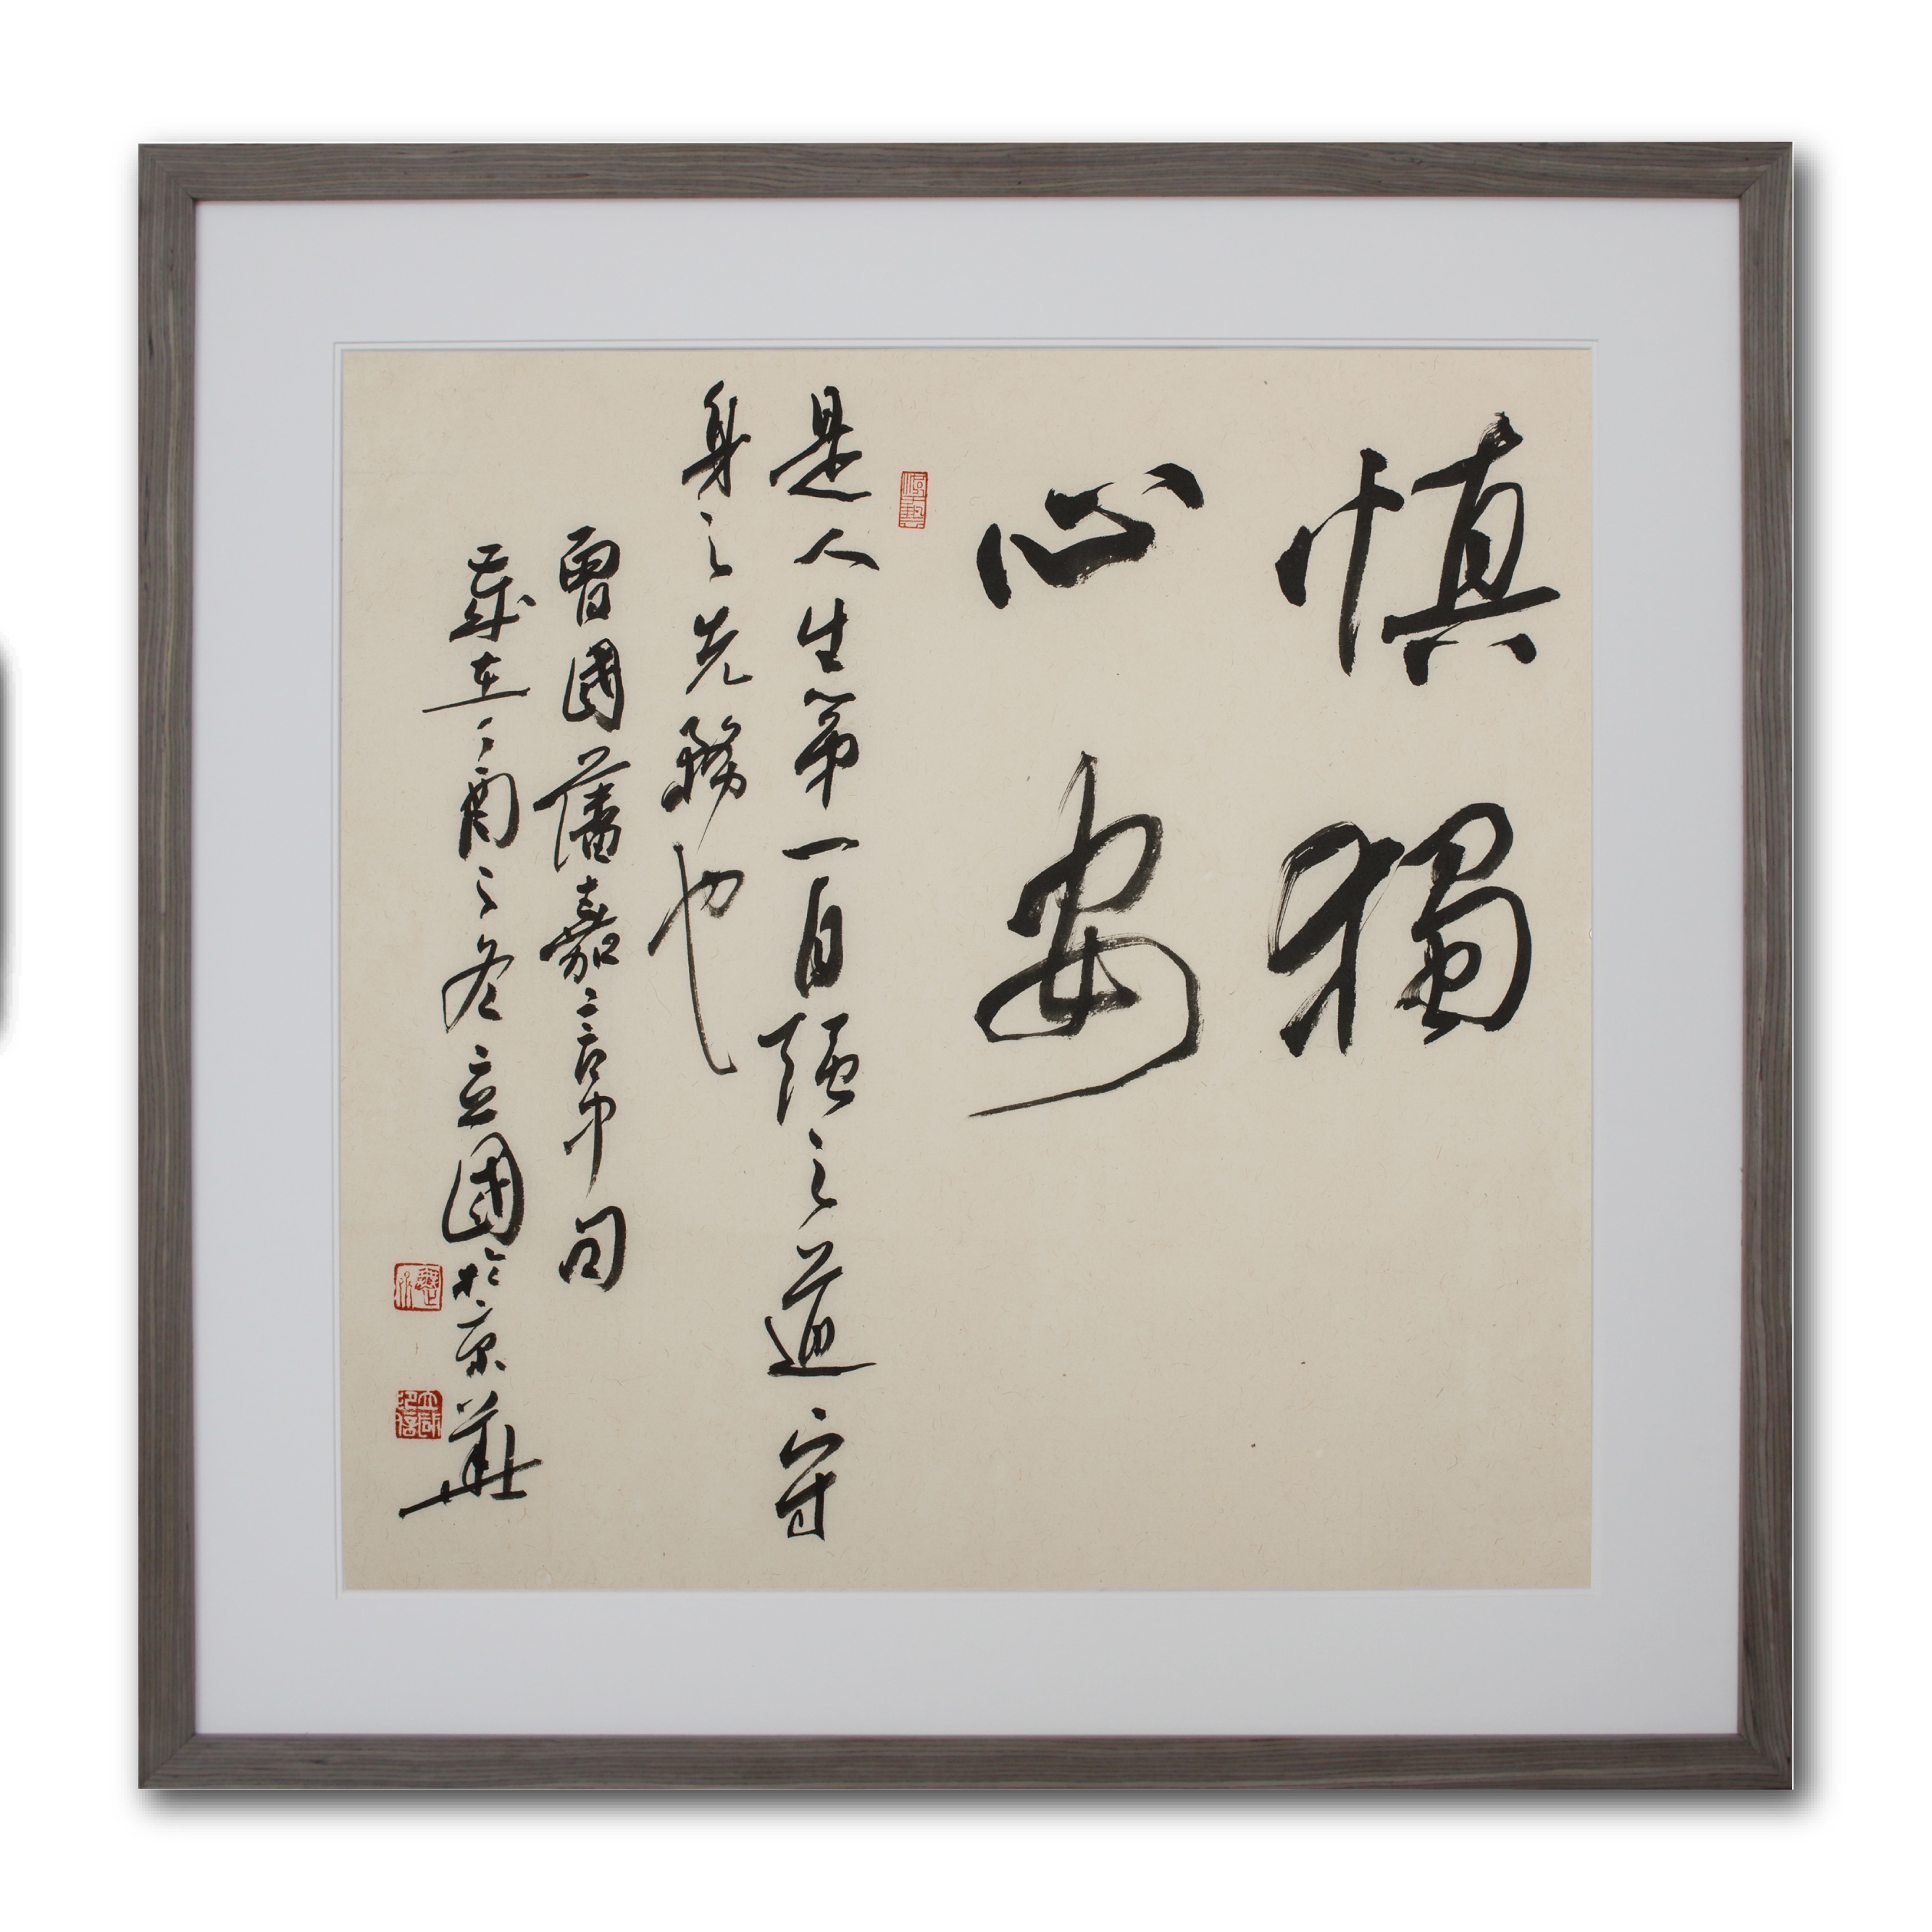 慎獨
心安
是人生第一自强之道守
身之先務也
曾國藩嘉言草句
歲在丁酉之冬立國於京華